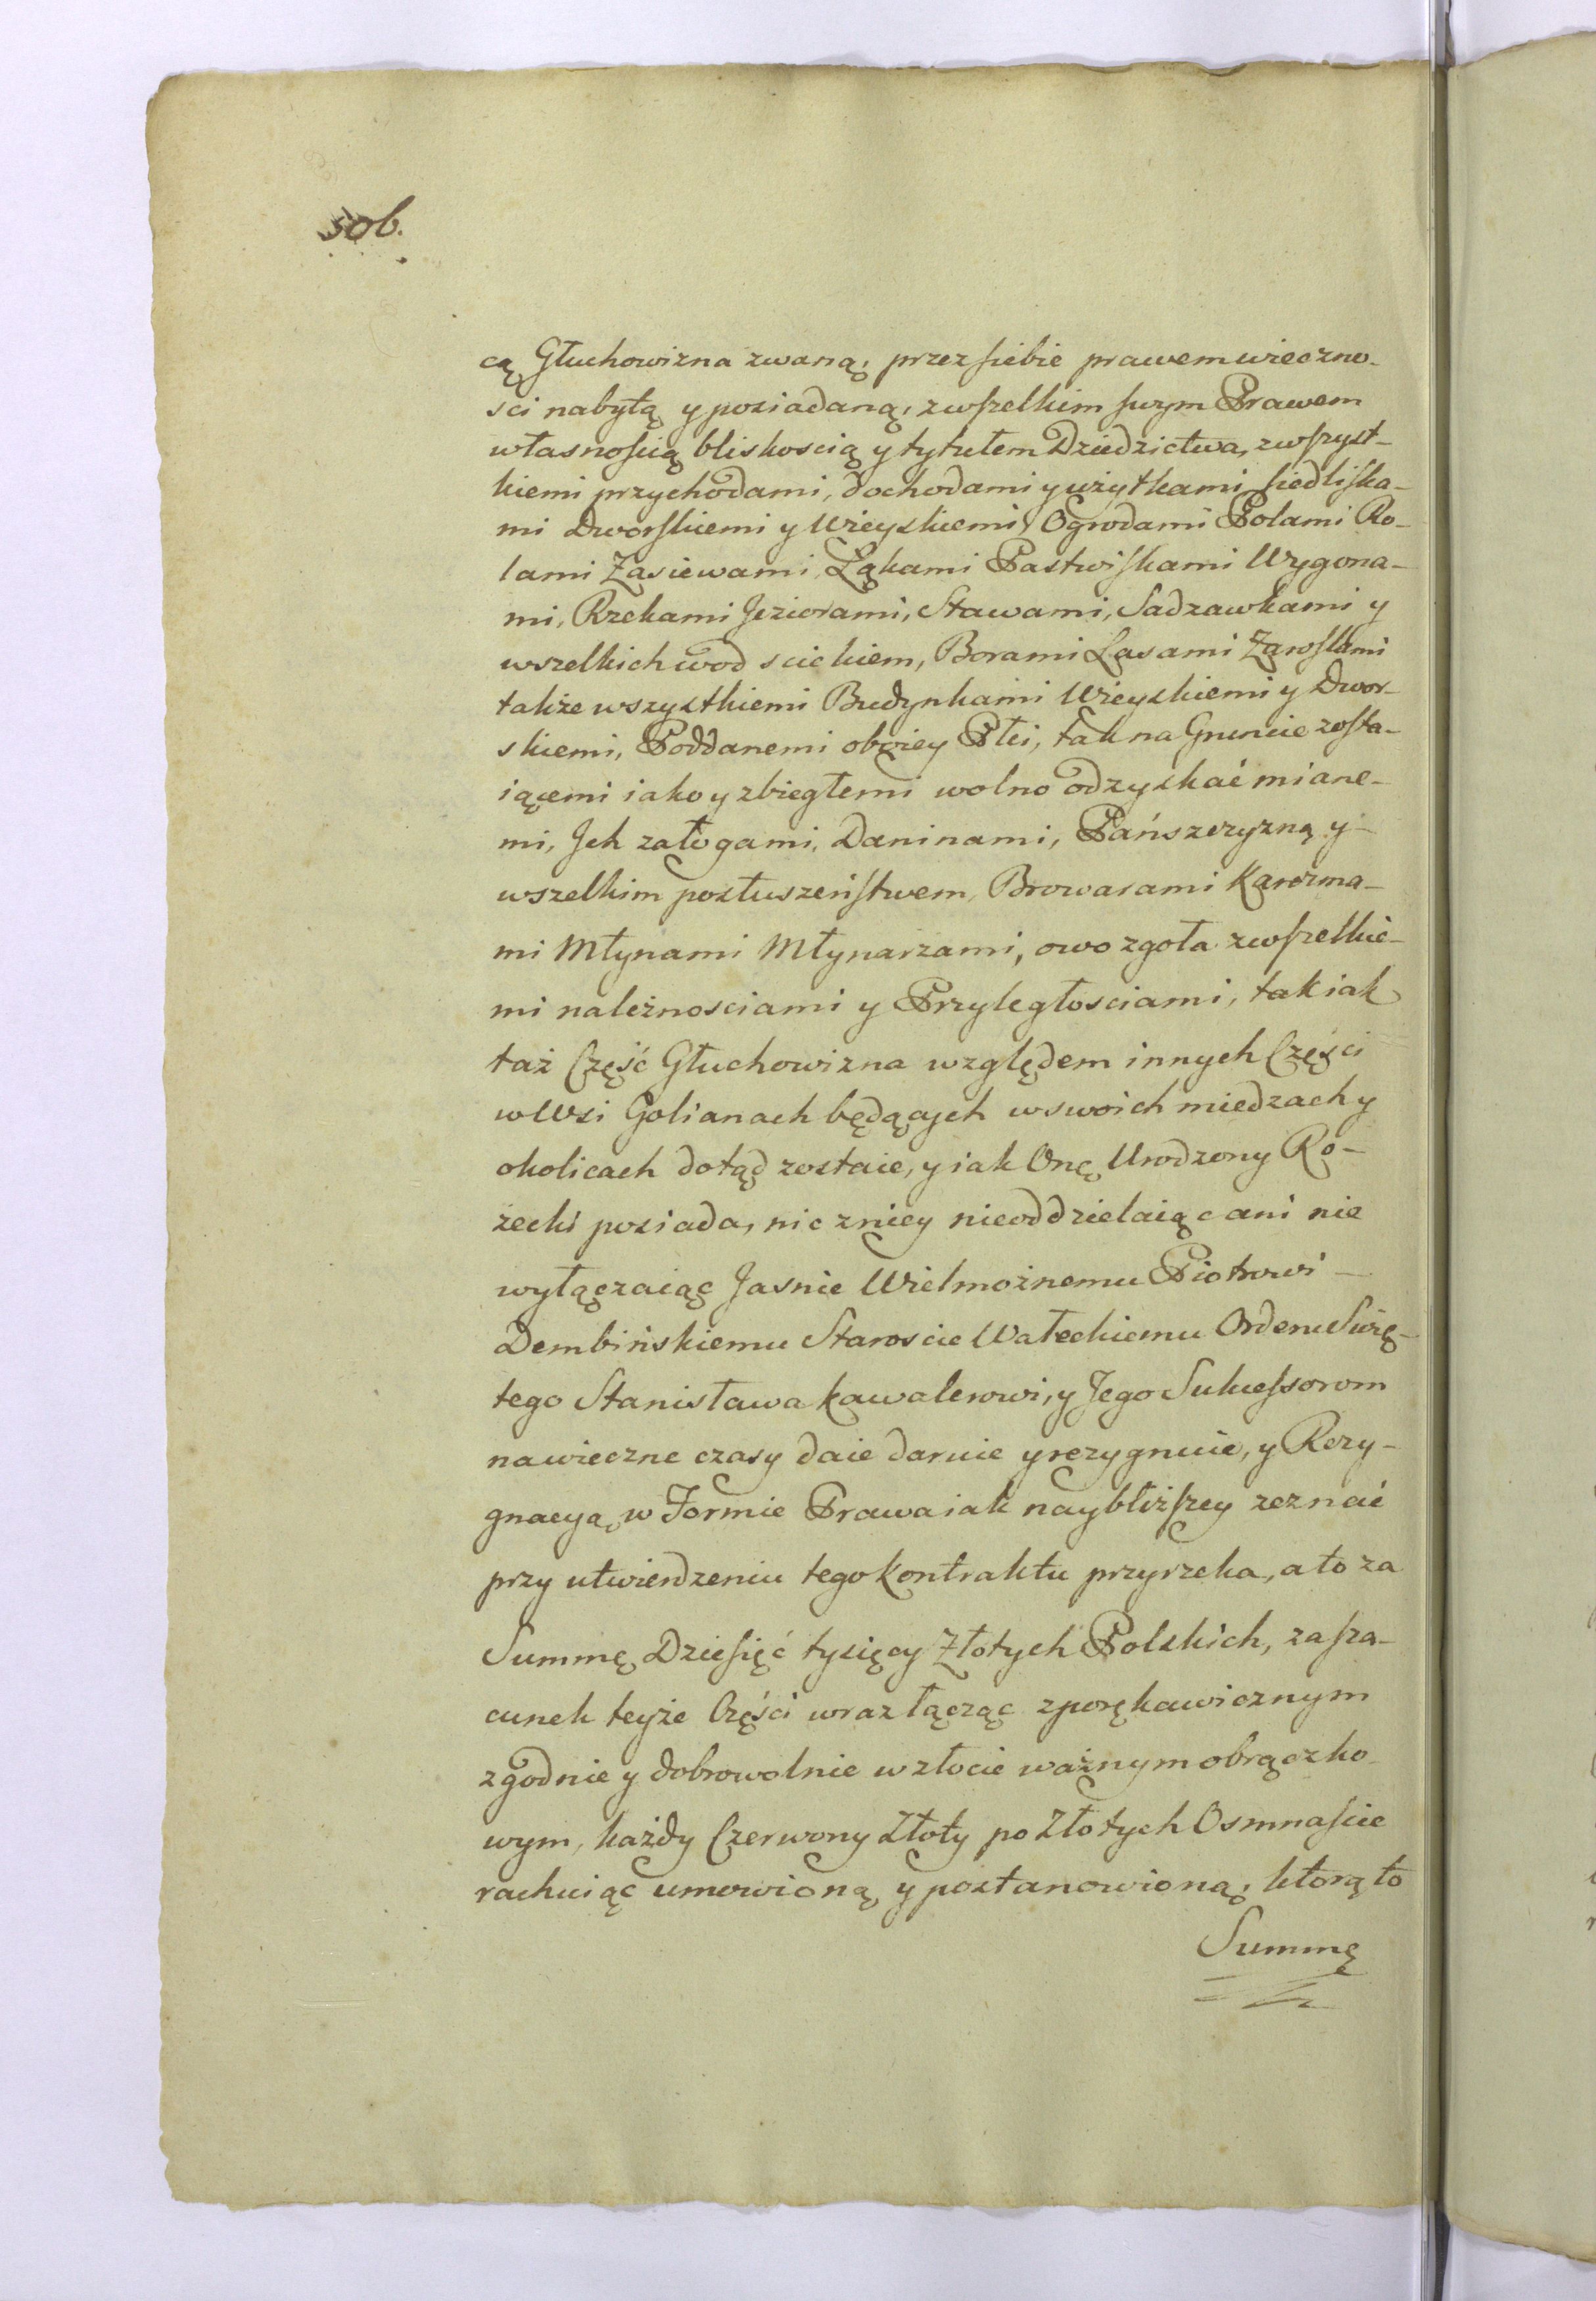 50b.
cą Głuchowizna zwaną, przez siebie prawem wieczno-
sci nabytą y posiadaną, zwszelkim swym Prawem
własnością bliskoscią y tytułem Dziedzictwa, zwszyst-
kiemi przychodami, dochodami y użytkami siedliska-
mi Dworskiemi y Wieyskiemi, Ogrodami Polami Ro-
lami Zasiewami, Łąkami Pastwiskami Wygona-
mi, Rzekami Jeziorami, Stawami, Sadzawkami y
wszelkich wod sciekiem, Borami Lasami Zaroslami
także wszystkiemi Budynkami Wieyskiemi y Dwor-
skiemi, Poddanemi oboiey Płci, tak na Gruncie zosta-
iącemi iako y zbiegłemi wolno odzyskać miane-
mi, Jch załogami, Daninami, Pańszczyzną y
wszelkim posłuszeństwem, Browarami Karczma-
mi Młynami Młynarzami, owo zgoła zwszelkie-
mi należnosciami y Przyległosciami, tak iak
taż Część Głuchowizna względem innych Części
w Wsi Golianach będących w swoich miedzach y
okolicach dotąd zostaie, y iak Onę Urodzony Ro-
żecki posiada, nic zniey nieoddzielaiąc ani nie
wyłączaiąc Jasnie Wielmożnemu Piotrowi
Dembińskiemu Staroscie Wałeckiemu Orderu Swię-
tego Stanisława Kawalerowi, y Jego Sukcessorom
na wieczne czasy daie daruie y rezygnuie, y Rezy-
gnacyą w Formie Prawa iak naybliższey zeznać
przy utwierdzeniu tego Kontraktu przyrzeka, a to za
Summę Dziesięć tysięcy Złotych Polskich, za sza-
cunek teyże Części wraz łącząc zporękawicznym
zgodnie y dobrowolnie w złocie ważnym obrączko-
wym, każdy Czerwony Złoty po Złotych Osmnascie
rachuiąc umowioną y postanowioną, ktorą to
Summę